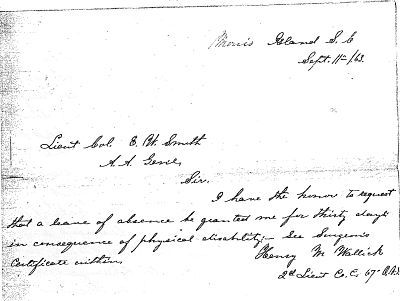 Morris Island S. C
Sept. 11th/63.
Lieut Col. E. W. Smith
A. A. Genl,
Sir.
I have the honor to request
that a leave of absence be granted me for thirty days
in consequence of physical disability - See Surgeons
Certificate within,
Henry M Wallick
2d Lieut Co. E, 67" O.V.I.